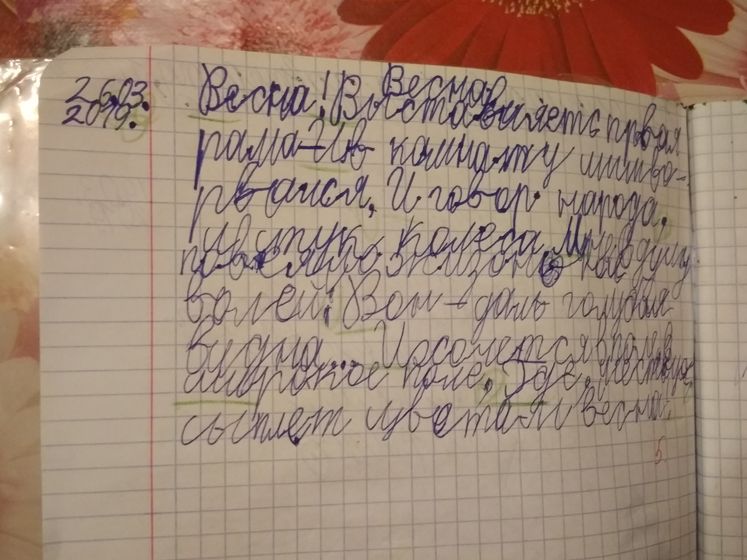 26.03.
2019.
Весна
Весна! Выставляется первая
рама – И в комнату шум во-
рвался, И говор народа,
и стук колеса. Мне в душу
повеяло жизнью и
волей: Вон – даль голубая
видна... И хочется в поле, в
широкое поле, Где, шествуя,
сыплет цветами весна.
5